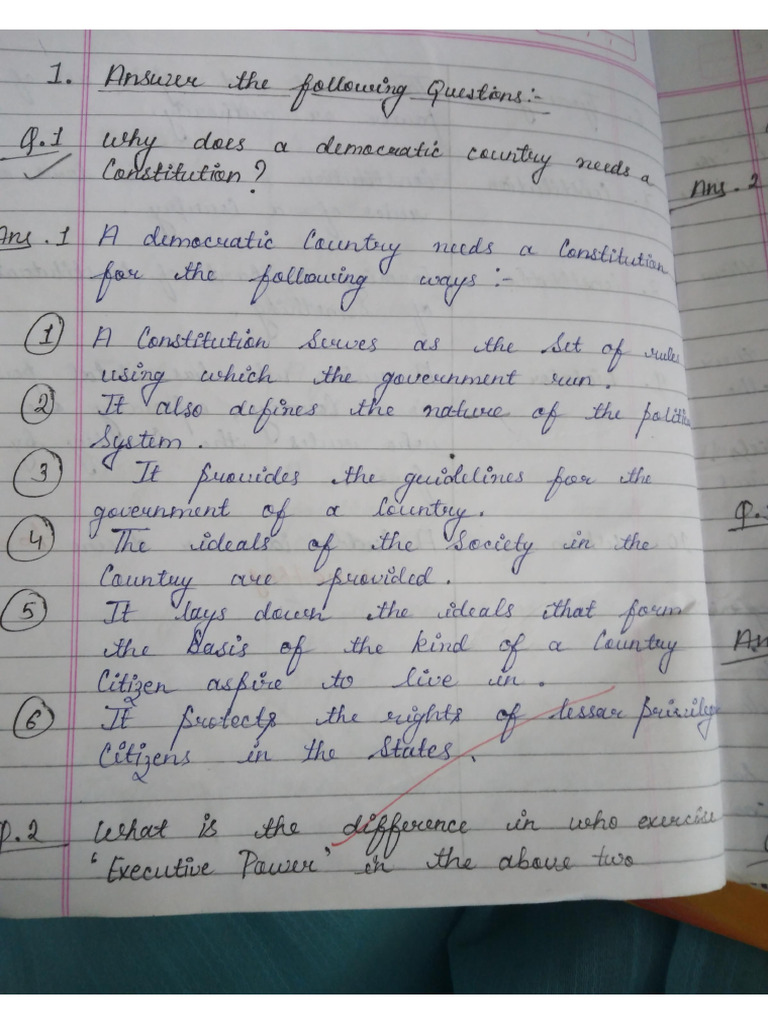 1. Answer the following Questions:-
Q.1 Why does a democratic country needs a
Constitution?
Ans. 2
Ans. 1 A democratic Country needs a Constitution
for the following ways :-
1 A Constitution serves as the set of rules
using which the government run.
2 It also defines the nature of the
System.
3 It provides the guidelines for the
government of a Country.
4 The ideals of the Society in the
Country are provided.
5 It lays down the ideals that form
the basis of the kind of a Country
Citizen aspire to live in.
6 It protects the rights of lessar privilege
Citizens in the States.
Q.2 What is the difference in who exercise
'Executive Power' in the above two